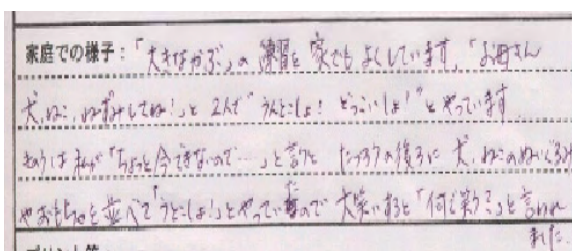 家庭での様子：「大きなかぶ」の練習を家でもよくしています。「お母さん
犬、ねこ、ねずみしてね！」と2人で"うんとこしょ！どっこいしょ！"とやっています
きのうは私が「ちょっと今できないので……」と言うと たつろうの後ろに 犬、ねこのぬいぐるみ
やおもちゃを並べて「うんとこしょ！」とやっていたので 大笑いすると「何で笑う？」と言われ
ました。